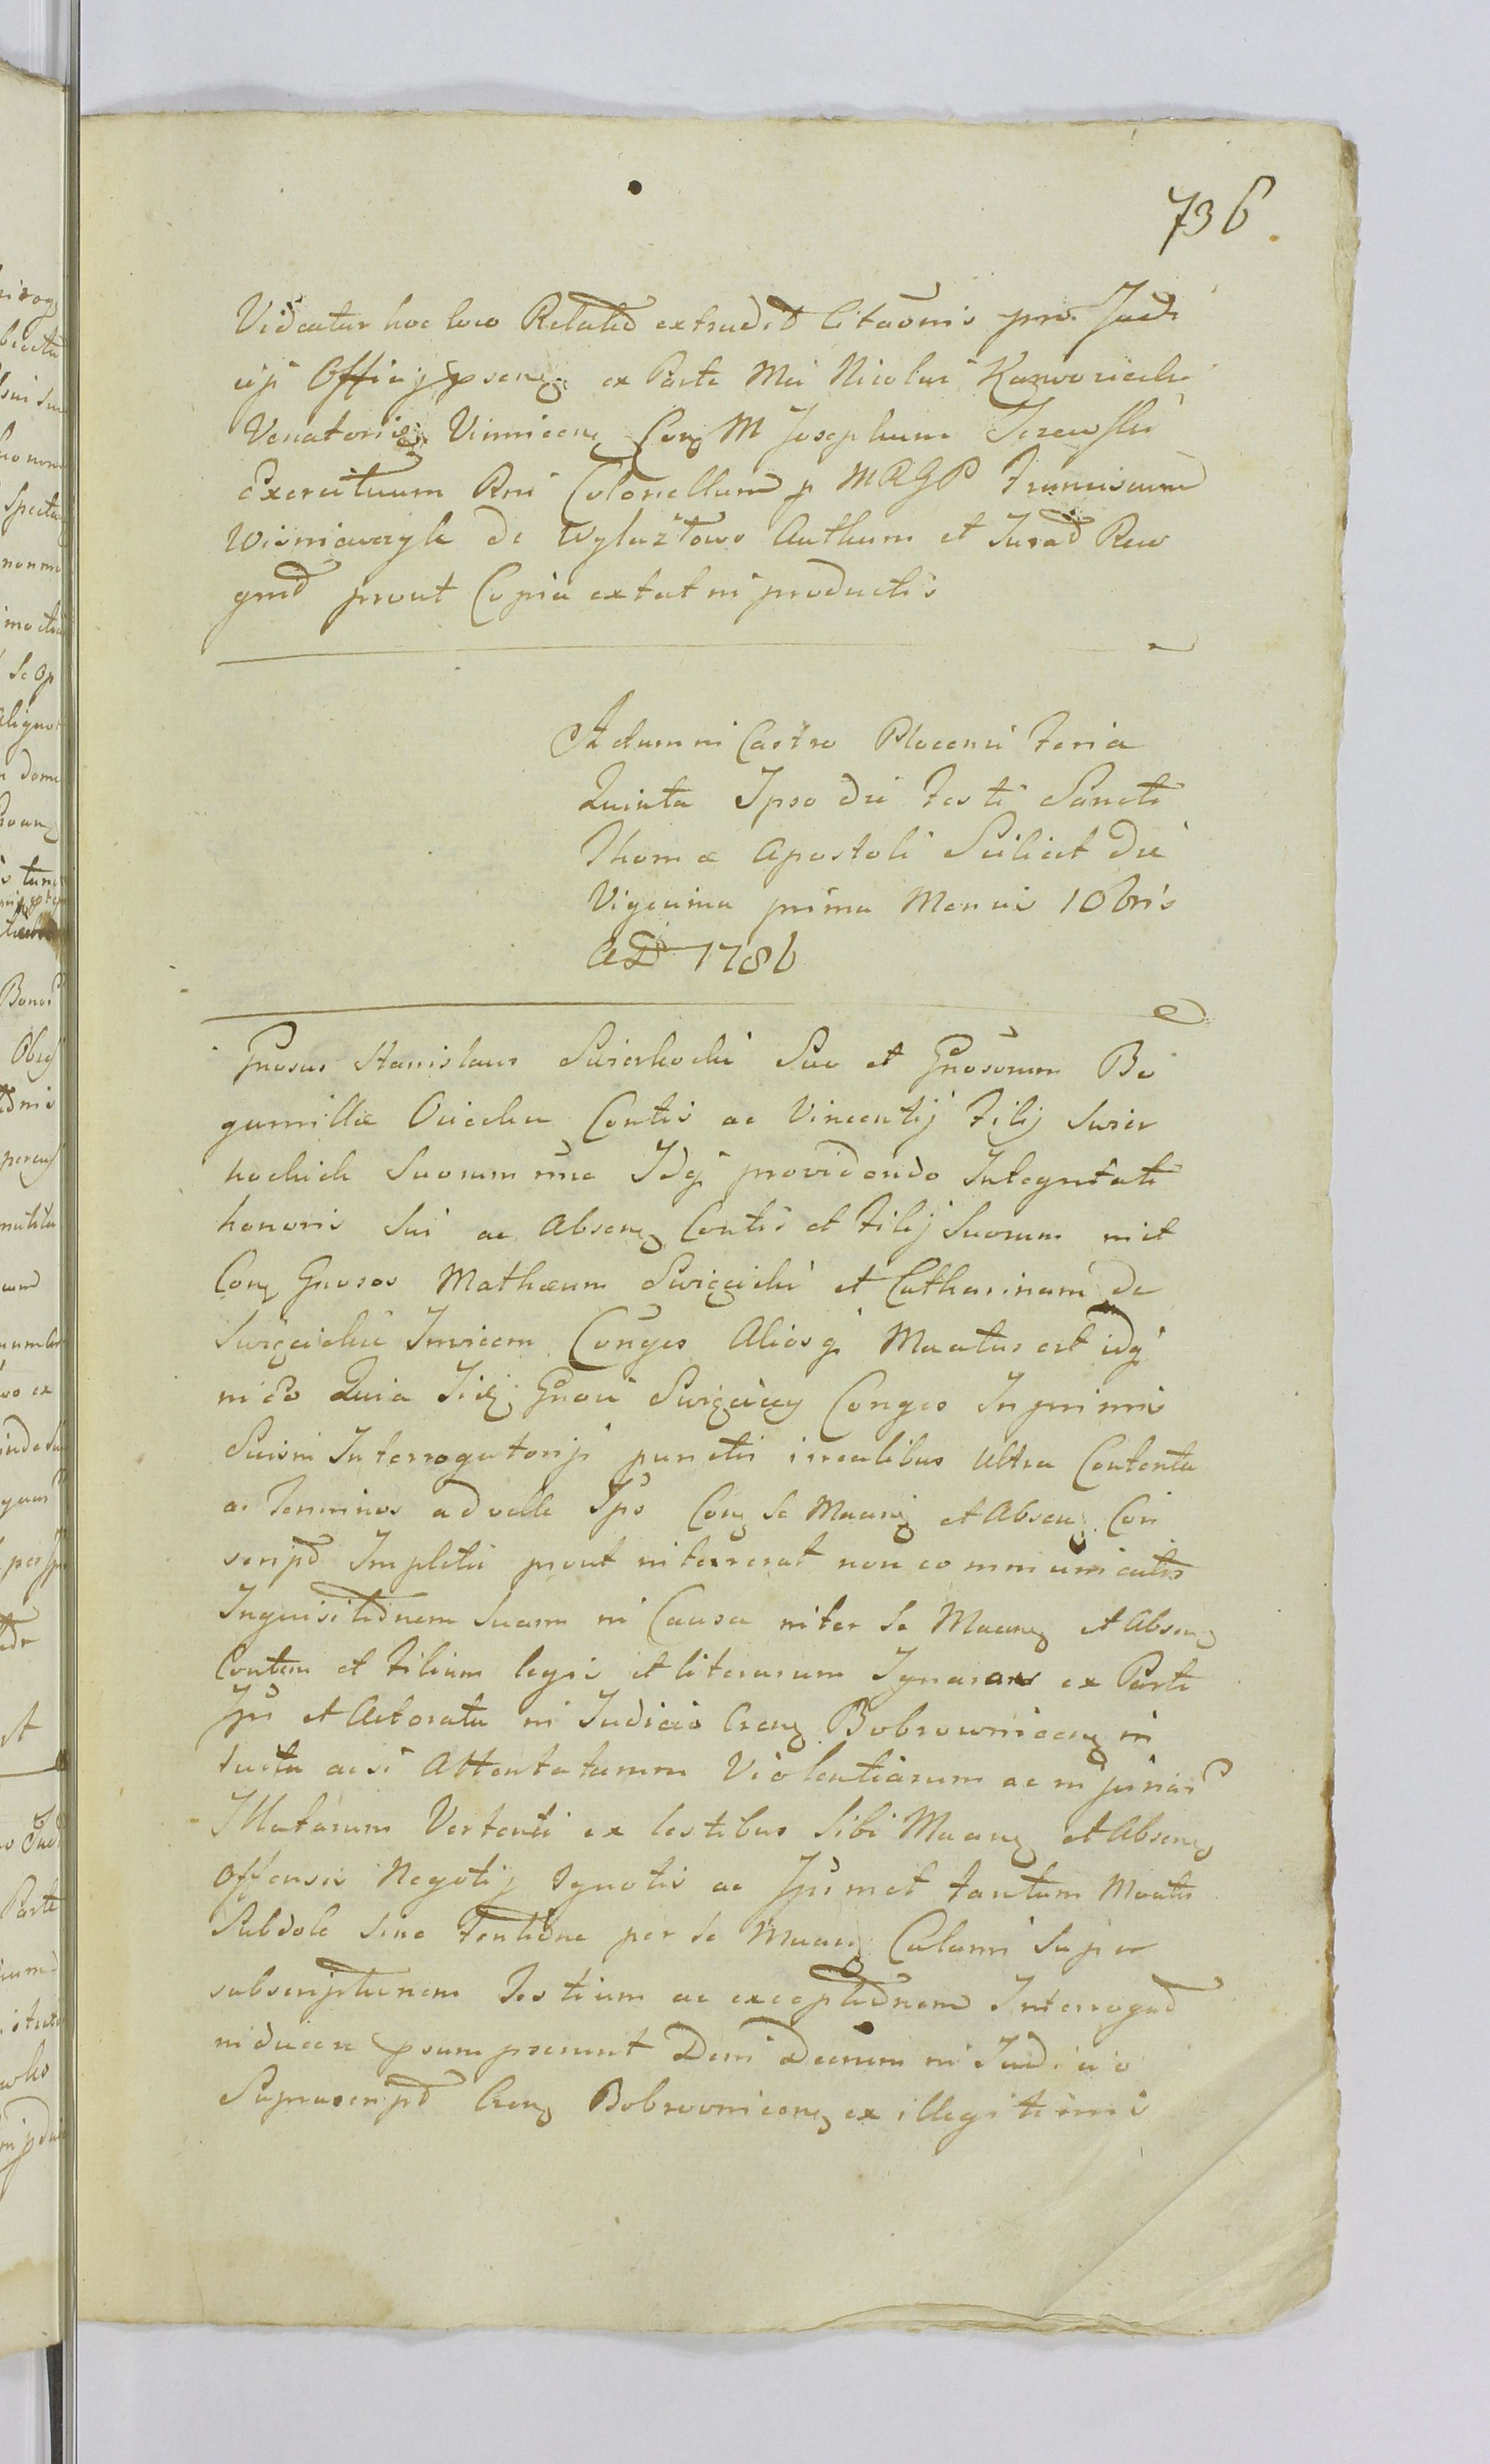 736.
Videatur hoc loco Relatio extradit Citaõnis pro Judi
cij Officij psenq ex Parte Mci Nicolai Karwowicki
Venatoris Vinnicenq Conq M Josephum Jezewski
Exercituum Rni Colonellum p MRGP Franciscum
Wisniewczyk de Wyluztowo Authum et Jurad Reco
gnid prout Copia extat in productis
Actum in Castro Plocensi Feria
Quinta Ipso die Festi Sancti
Thomæ Apostoli Scilicet die
Vigesima prima Mensis 10bris
AD 1786
Gnosus Stanislaus Swierkocki Suo et Gnosorum Bo
gumilla Contis ac Vincentij Filij Swier
kockich Suorum nne Idq providendo Integritati
honoris Sui ac Absenq Contis et Filij Suorum nit
Conq Gnosos Mathæum Swięcicki et Catharinam de
Swięcickie Invicem Conges Aliosq Maatus est idq
in eo Quia Iidq Gnosi Swięciccy Conges In primis
Suis in Interrogatorij punctis irealibus Ultra Contenta
ac Terminos ad velle Ips Conq Se Maanq et Absenq Con
script Impletis prout intererat non communicatis
Inquisitionem Suam in Causa inter Se Maanq et Absenq
Contem et Filium legis et literarum Ignaram ex Parte
Ipsi et Actorata in Judicio Crenq Bobrownicenq in
tuitu acsi Attentatarum Violentiarum ac injuriar
Illatarum Vertenti ex testibus Sibi Maanq et Absenq
Offensis Negotij Ignotis ac Ipsimet tantum Maatis
Subdole Sine tentione per Se Maanq Calami Super
subscriptionem Testium ac exceptionem Interrogad
inducere psumpserunt Dein Decretum in Judicio
Suprascript Crenq Bobrownicenq ex illegitimis